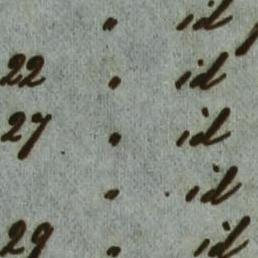 " id
22 " id
27 " id
" id
29 " id